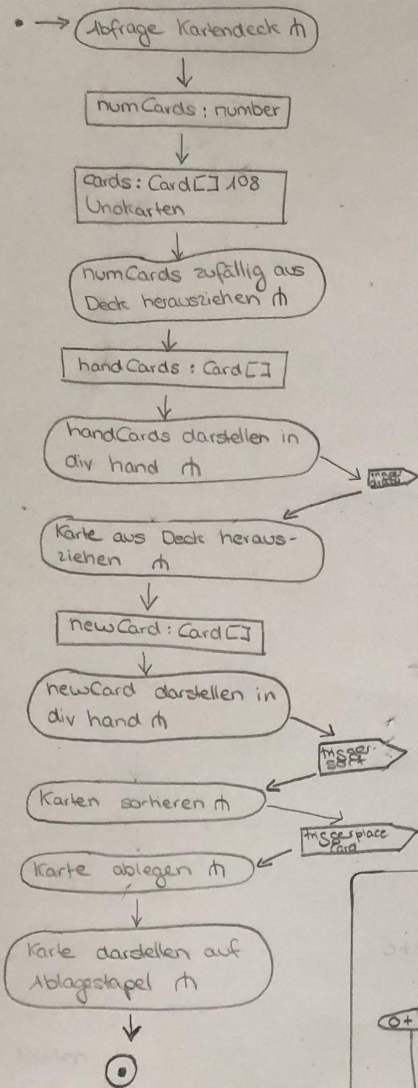 Abfrage Kartendeck
numCards : number
cards : Card[] 108
Unokarten
numCards zufällig aus
Deck herausziehen
handCards : Card[]
handCards darstellen in
div hand
trigger
Karte aus Deck heraus-
ziehen
newCard : Card[]
newCard darstellen in
div hand
trigger
sort
Karten sortieren
trigger place
Card
Karte ablegen
Karte darstellen auf
Ablagestapel